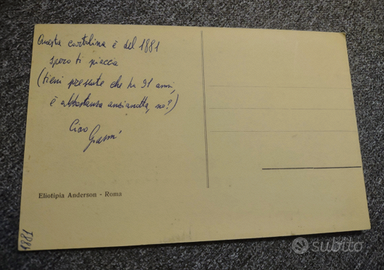 Questa cartolina è del 1881
spero ti piaccia
(tieni presente che ha 31 anni,
è abbastanza anzianotta, no?)
Ciao
Gianni
Eliotipia Anderson - Roma
1881
subito